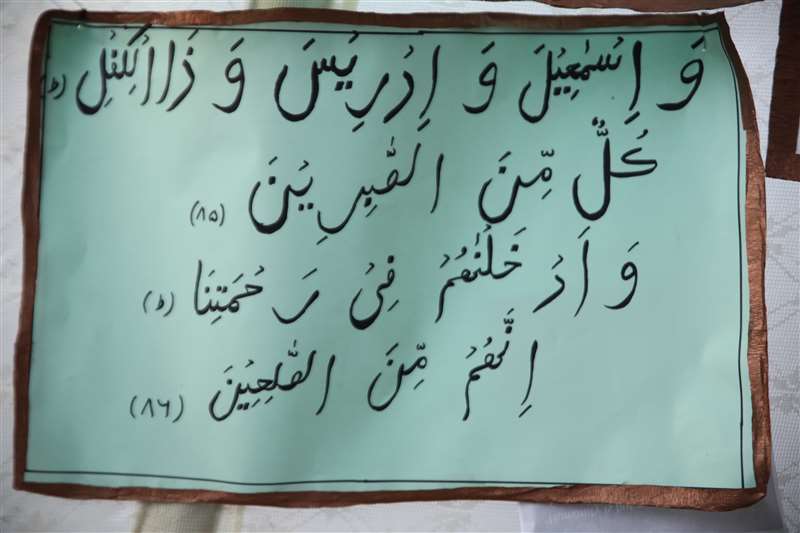 وَ اِسْمٰعِیْلَ وَ اِدْرِیْسَ وَ ذَاالْکِفْلِ (ؕ)
کُلٌّ مِّنَ الصّٰبِرِیْنَ (۸۵)
وَ اَدْخَلْنٰهُمْ فِیْ رَحْمَتِنَا (ؕ)
اِنَّهُمْ مِّنَ الصّٰلِحِیْنَ (۸۶)